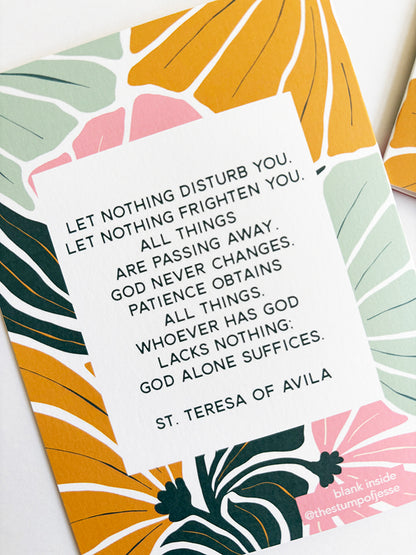 LET NOTHING DISTURB YOU.
LET NOTHING FRIGHTEN YOU.
ALL THINGS
ARE PASSING AWAY.
GOD NEVER CHANGES.
PATIENCE OBTAINS
ALL THINGS.
WHOEVER HAS GOD
LACKS NOTHING;
GOD ALONE SUFFICES.
ST. TERESA OF AVILA
blank inside
@thestumpofjesse